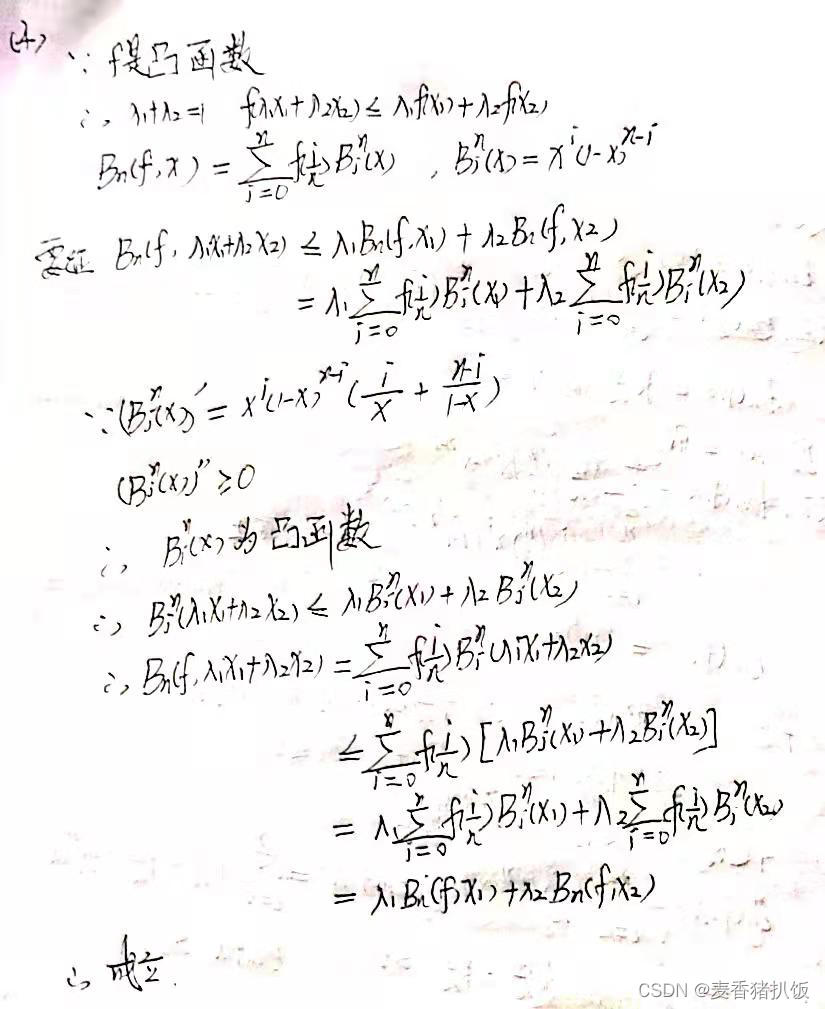 (4) ∵ f是凸函数
∴ λ₁+λ₂=1 f(λ₁x₁+λ₂x₂) ≤ λ₁f(x₁)+λ₂f(x₂)
Bn(f,x) = Σ_{i=0}^{n} f(i/n) Bᵢⁿ(x) , Bᵢⁿ(x) = xⁱ(1-x)ⁿ⁻ⁱ
要证 Bn(f, λ₁x₁+λ₂x₂) ≤ λ₁Bn(f,x₁) + λ₂Bn(f,x₂)
= λ₁ Σ_{i=0}^{n} f(i/n) Bᵢⁿ(x₁) + λ₂ Σ_{i=0}^{n} f(i/n) Bᵢⁿ(x₂)
∵ (Bᵢⁿ(x))′ = xⁱ(1-x)ⁿ⁻ⁱ (i/x + (n-i)/(1-x))
(Bᵢⁿ(x))″ ≥ 0
∴ Bᵢⁿ(x) 为凸函数
∴ Bᵢⁿ(λ₁x₁+λ₂x₂) ≤ λ₁Bᵢⁿ(x₁) + λ₂Bᵢⁿ(x₂)
∴ Bn(f, λ₁x₁+λ₂x₂) = Σ_{i=0}^{n} f(i/n) Bᵢⁿ(λ₁x₁+λ₂x₂)
≤ Σ_{i=0}^{n} f(i/n) [λ₁Bᵢⁿ(x₁) + λ₂Bᵢⁿ(x₂)]
= λ₁ Σ_{i=0}^{n} f(i/n) Bᵢⁿ(x₁) + λ₂ Σ_{i=0}^{n} f(i/n) Bᵢⁿ(x₂)
= λ₁Bn(f,x₁) + λ₂Bn(f,x₂)
∴ 成立.
CSDN @麦香猪扒饭